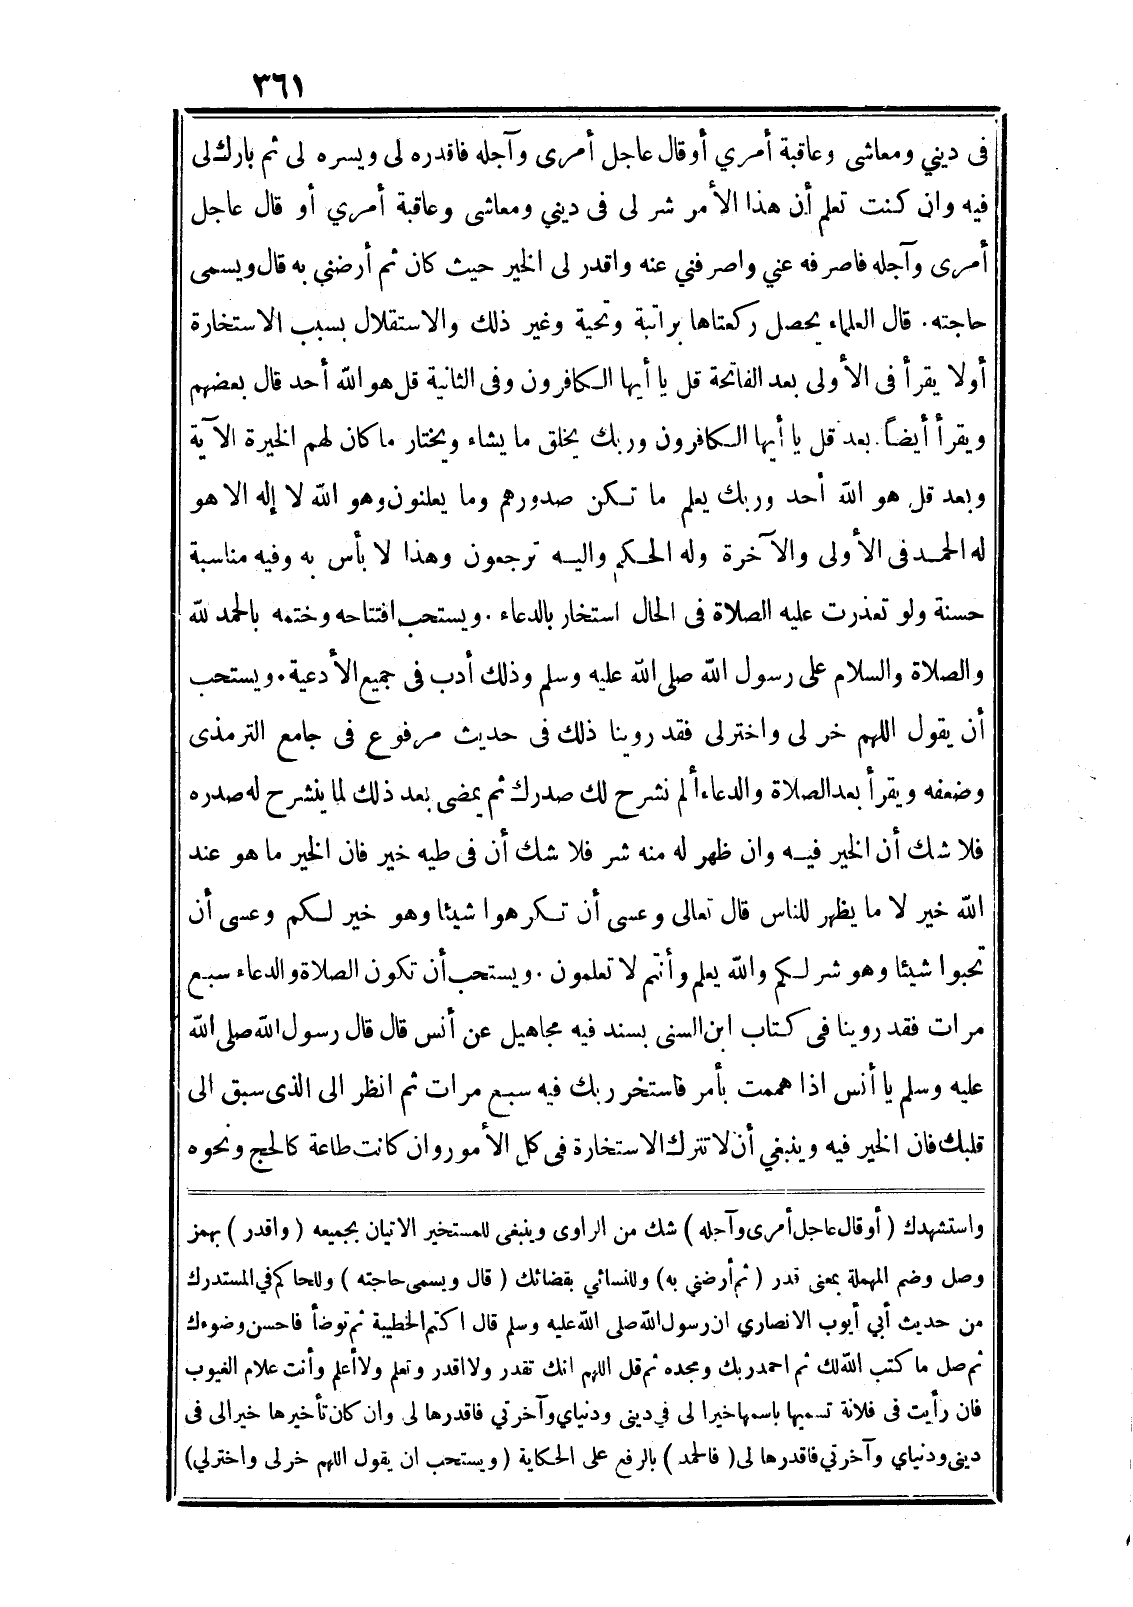 ٣٦١
فى ديني ومعاشى وعاقبة أمري أوقال عاجل أمرى وآجله فاقدره لى ويسره لى ثم بارك لى
فيه وان كنت تعلم أن هذا الأمر شر لى فى ديني ومعاشى وعاقبة أمري أو قال عاجل
أمرى وآجله فاصرفه عني واصرفني عنه واقدر لى الخير حيث كان ثم أرضني به قال ويسمى
حاجته. قال العلماء يحصل ركعتاها براتبة وتحية وغير ذلك والاستقلال بسبب الاستخارة
أولا يقرأ فى الأولى بعد الفاتحة قل يا أيها الكافرون وفى الثانية قل هو الله أحد قال بعضهم
ويقرأ أيضاً. بعد قل يا أيها الكافرون وربك يخلق ما يشاء ويختار ما كان لهم الخيرة الآية
وبعد قل هو الله أحد وربك يعلم ما تكن صدورهم وما يعلنون وهو الله لا إله الا هو
له الحمد فى الأولى والآخرة وله الحكم واليه ترجعون وهذا لا بأس به وفيه مناسبة
حسنة ولو تعذرت عليه الصلاة فى الحال استخار بالدعاء. ويستحب افتتاحه وختمه بالحمد لله
والصلاة والسلام على رسول الله صلى الله عليه وسلم وذلك أدب فى جميع الأدعية. ويستحب
أن يقول اللهم خر لى واختر لى فقد روينا ذلك فى حديث مرفوع فى جامع الترمذى
وضعفه ويقرأ بعد الصلاة والدعاء ألم نشرح لك صدرك ثم يمضى بعد ذلك لما ينشرح له صدره
فلا شك أن الخير فيه وان ظهر له منه شر فلا شك أن فى طيه خير فان الخير ما هو عند
الله خير لا ما يظهر للناس قال تعالى وعسى أن تكرهوا شيئا وهو خير لكم وعسى أن
تحبوا شيئا وهو شر لكم والله يعلم وأنتم لا تعلمون. ويستحب أن تكون الصلاة والدعاء سبع
مرات فقد روينا فى كتاب ابن السنى بسند فيه مجاهيل عن أنس قال قال رسول الله صلى الله
عليه وسلم يا أنس اذا هممت بأمر فاستخر ربك فيه سبع مرات ثم انظر الى الذى سبق الى
قلبك فان الخير فيه وينبغي أن لا تترك الاستخارة فى كل الأمور وان كانت طاعة كالحج ونحوه
واستشهدك ( أو قال عاجل أمرى وآجله ) شك من الراوى وينبغى للمستخير الاتيان بجميعه ( واقدر ) بهمز
وصل وضم المهملة بمعنى قدر ( ثم أرضني به ) وللنسائي بقضائك ( قال ويسمى حاجته ) وللحاكم في المستدرك
من حديث أبي أيوب الانصاري ان رسول الله صلى الله عليه وسلم قال اكتم الخطيبة ثم توضأ فاحسن وضوءك
ثم صل ما كتب الله لك ثم احمد ربك ومجده ثم قل اللهم انك تقدر ولا اقدر وتعلم ولا أعلم وأنت علام الغيوب
فان رأيت فى فلانة تسميها باسمها خيرا لى في دينى ودنياي وآخرتي فاقدرها لى وان كان تأخيرها خيرا لى فى
دينى ودنياي وآخرتي فاقدرها لى ( فالحمد ) بالرفع على الحكاية ( ويستحب ان يقول اللهم خر لى واختر لي)